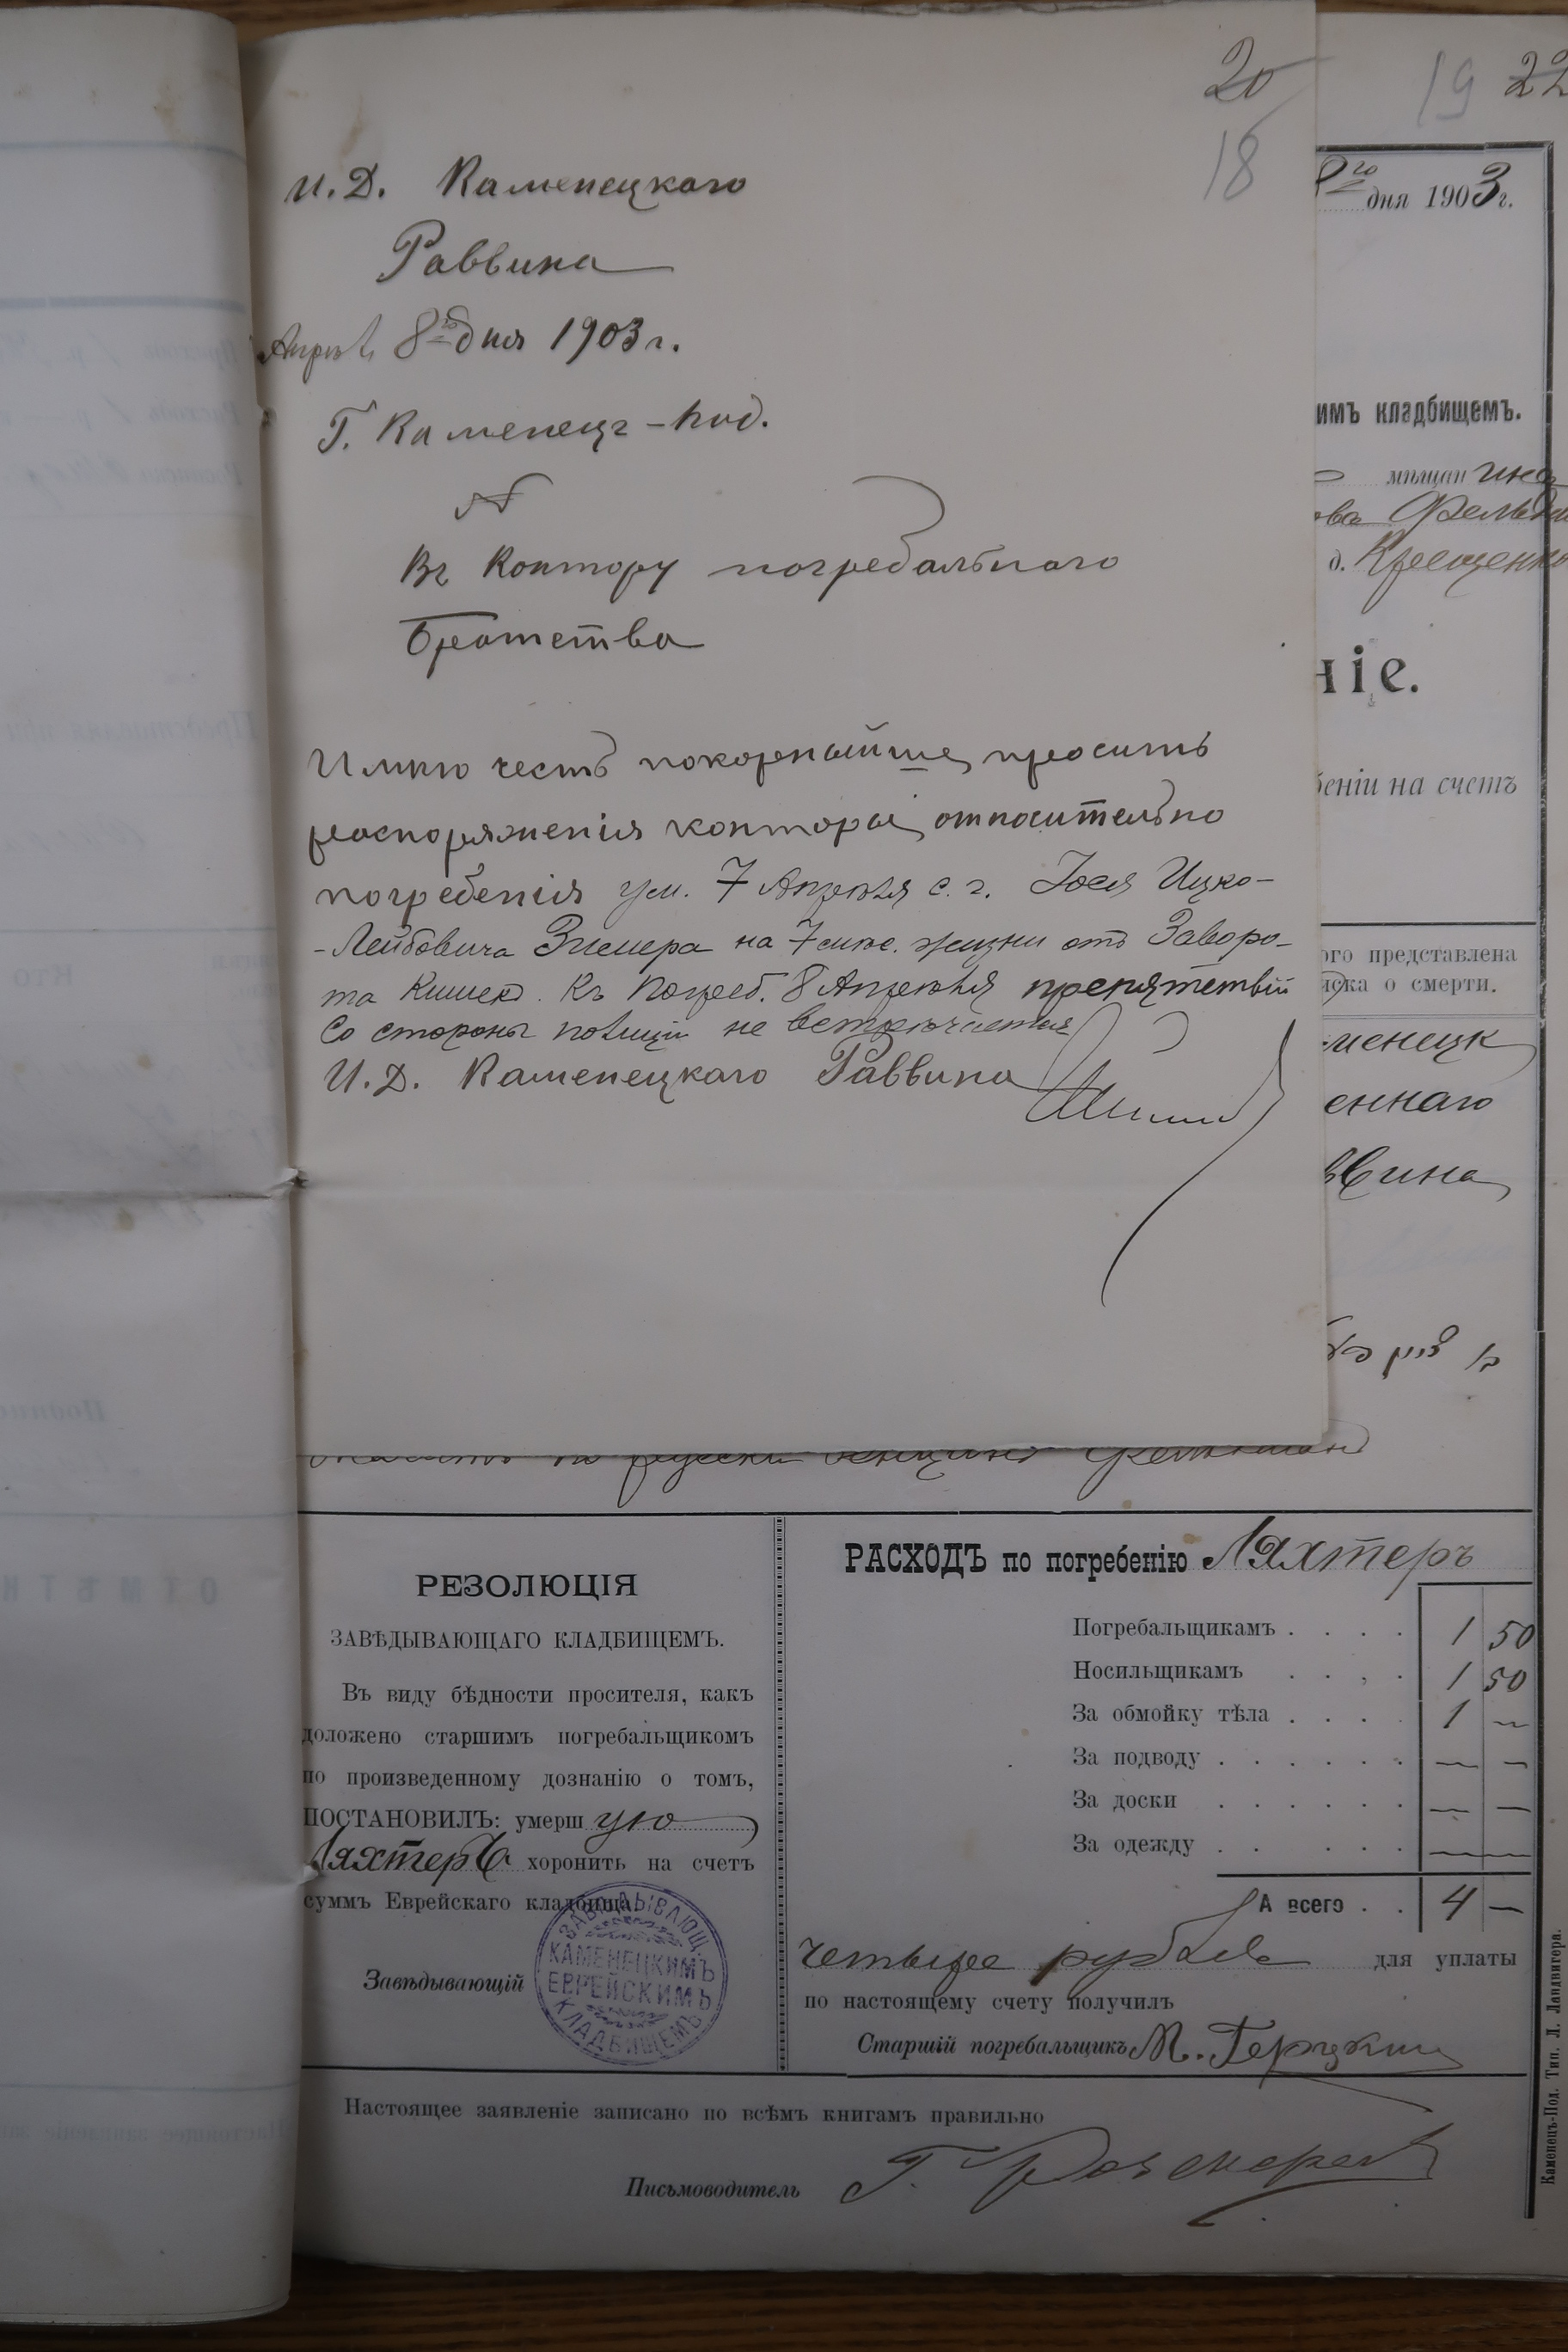 20
18
И. Д. Каменецкаго
Раввина
8го дня 1903 г.
Г. Каменецъ-Под.
№
Въ Контору погребальнаго
Братства
Имѣю честь покорнѣйше просить
распоряженія конторы относительно
погребенія ум. 7 Апрѣля с. г. Іося Ицко-
-Лейбовича на 7 жизни отъ Заворо-
та Кишекъ. Къ Погреб. 8 Апрѣля препятствій
Со стороны полиціи не встрѣчается
И. Д. Каменецкаго Раввина
19 22
дня 1903 г.
имъ кладбищемъ.
мѣщанина
д.
ніе.
беніи на счетъ
ого представлена
иска о смерти.
менецк
еннаго
ввина
РЕЗОЛЮЦІЯ
ЗАВѢДЫВАЮЩАГО КЛАДБИЩЕМЪ.
Въ виду бѣдности просителя, какъ
доложено старшимъ погребальщикомъ
по произведенному дознанію о томъ,
ПОСТАНОВИЛЪ: умершую
Ляхтеръ хоронить на счетъ
суммъ Еврейскаго кладбища.
Завѣдывающій
ЗАВѢДЫВАЮЩ.
КАМЕНЕЦКИМЪ
ЕВРЕЙСКИМЪ
КЛАДБИЩЕМЪ
РАСХОДЪ по погребенію Ляхтеръ
Погребальщикамъ . . . . 1 50
Носильщикамъ . . . . 1 50
За обмойку тѣла . . . . 1 —
За подводу . . . . . . — —
За доски . . . . . . — —
За одежду . . . . . — —
А всего . . 4 —
Четыре рубля для уплаты
по настоящему счету получилъ
Старшій погребальщикъ М.
Настоящее заявленіе записано по всѣмъ книгамъ правильно
Письмоводитель Г.
Каменецъ-Под. Тип. Л. Ландвигера.